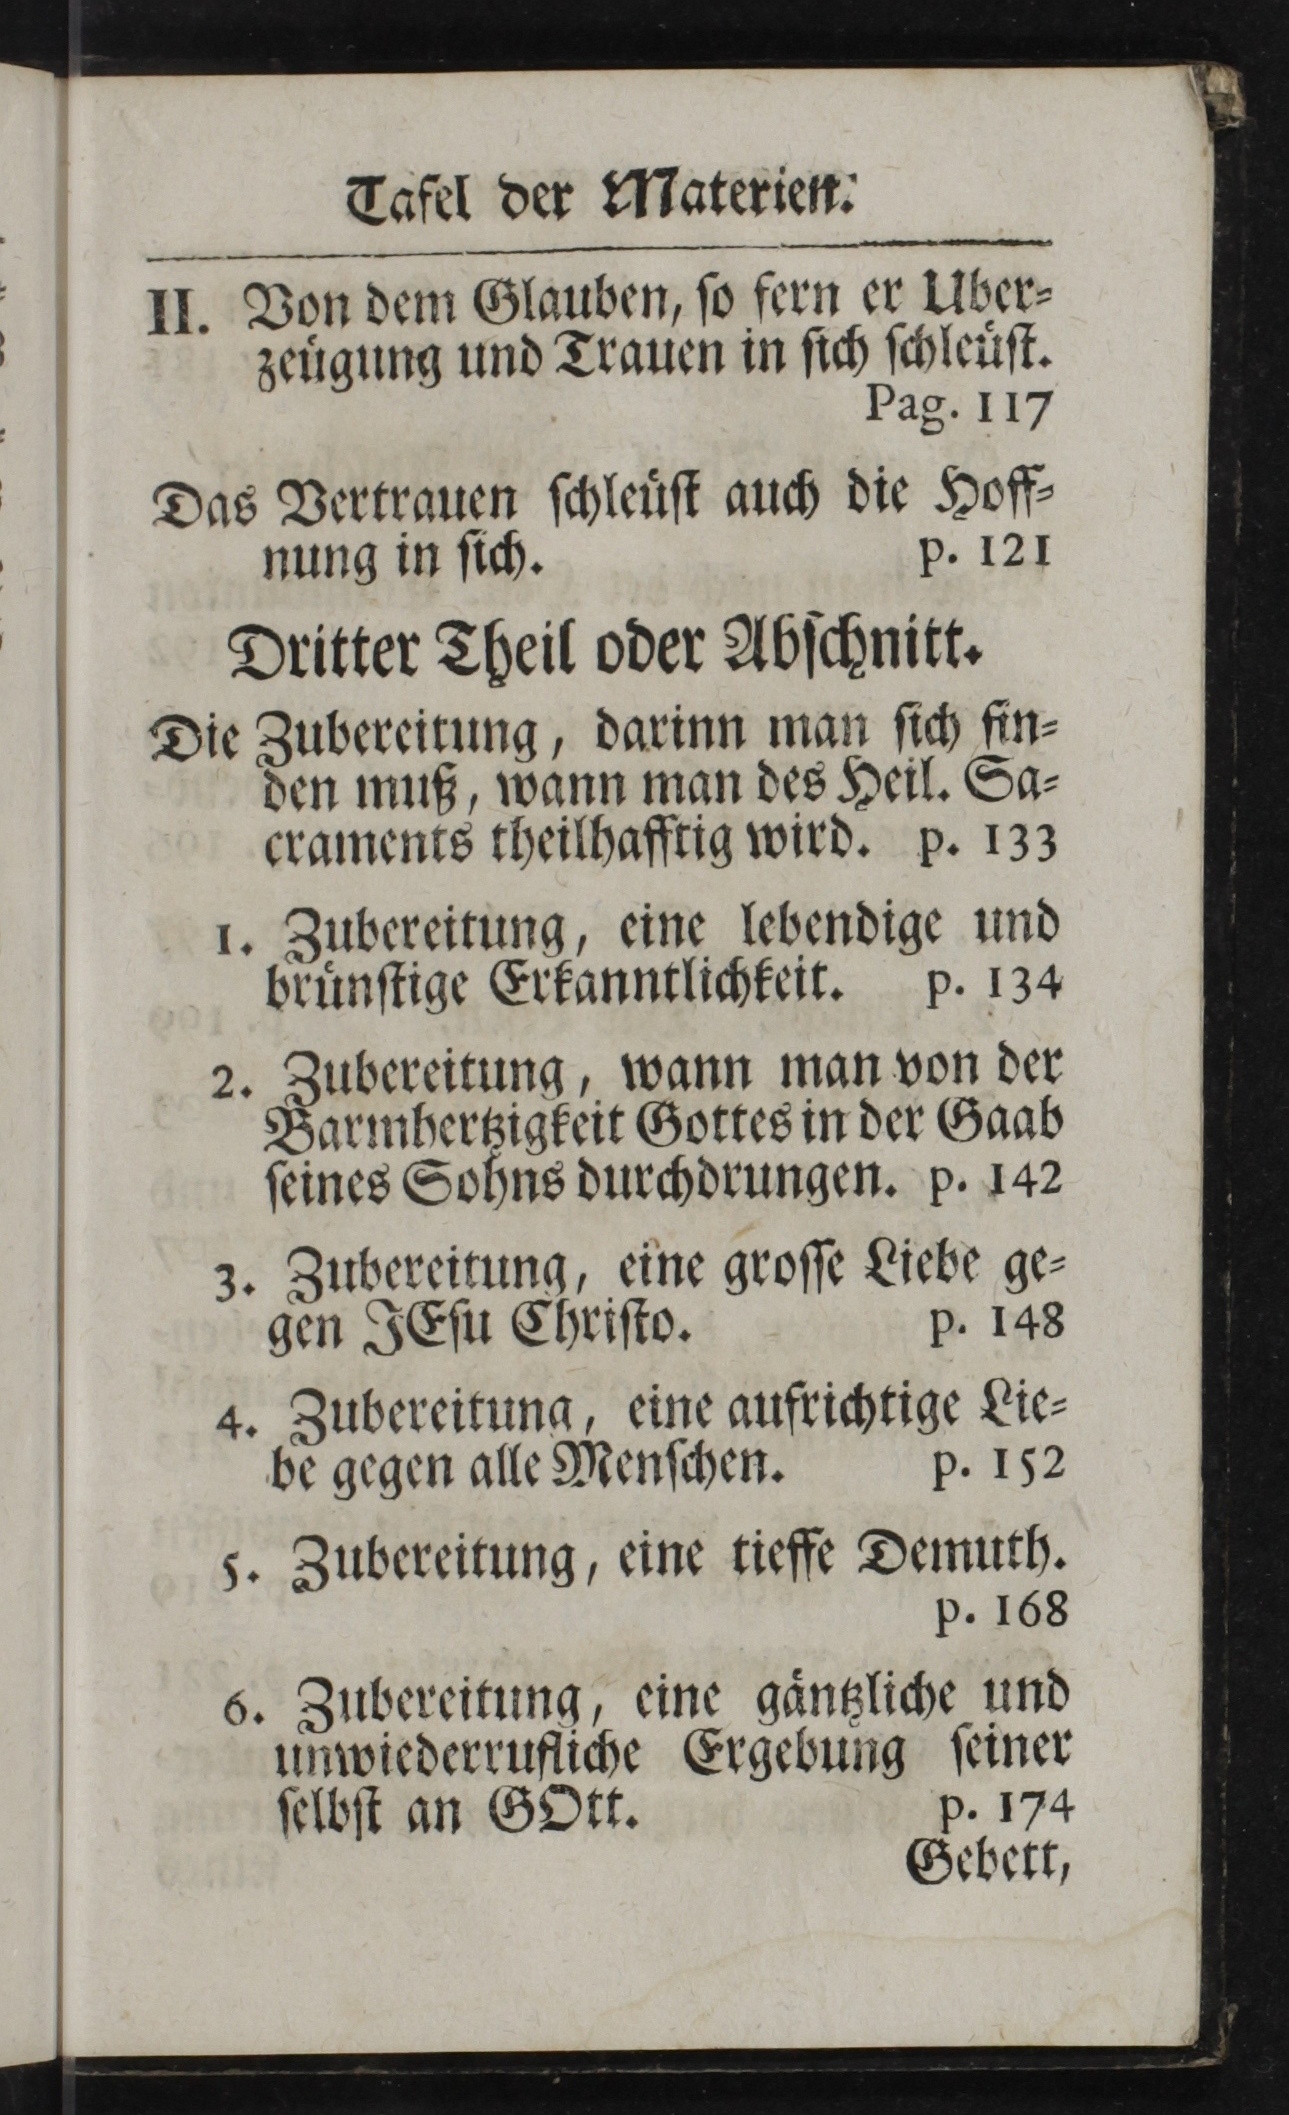 Tafel der Materien.
II. Von dem Glauben, so fern er Uber=
zeügung und Trauen in sich schleüst.
Pag. 117
Das Vertrauen schleüst auch die Hoff=
nung in sich. p. 121
Dritter Theil oder Abschnitt.
Die Zubereitung, darinn man sich fin=
den muß, wann man des Heil. Sa=
craments theilhafftig wird. p. 133
1. Zubereitung, eine lebendige und
brünstige Erkanntlichkeit. p. 134
2. Zubereitung, wann man von der
Barmhertzigkeit Gottes in der Gaab
seines Sohns durchdrungen. p. 142
3. Zubereitung, eine grosse Liebe ge=
gen JEsu Christo. p. 148
4. Zubereitung, eine aufrichtige Lie=
be gegen alle Menschen. p. 152
5. Zubereitung, eine tieffe Demuth.
p. 168
6. Zubereitung, eine gäntzliche und
unwiederrufliche Ergebung seiner
selbst an GOtt. p. 174
Gebett,